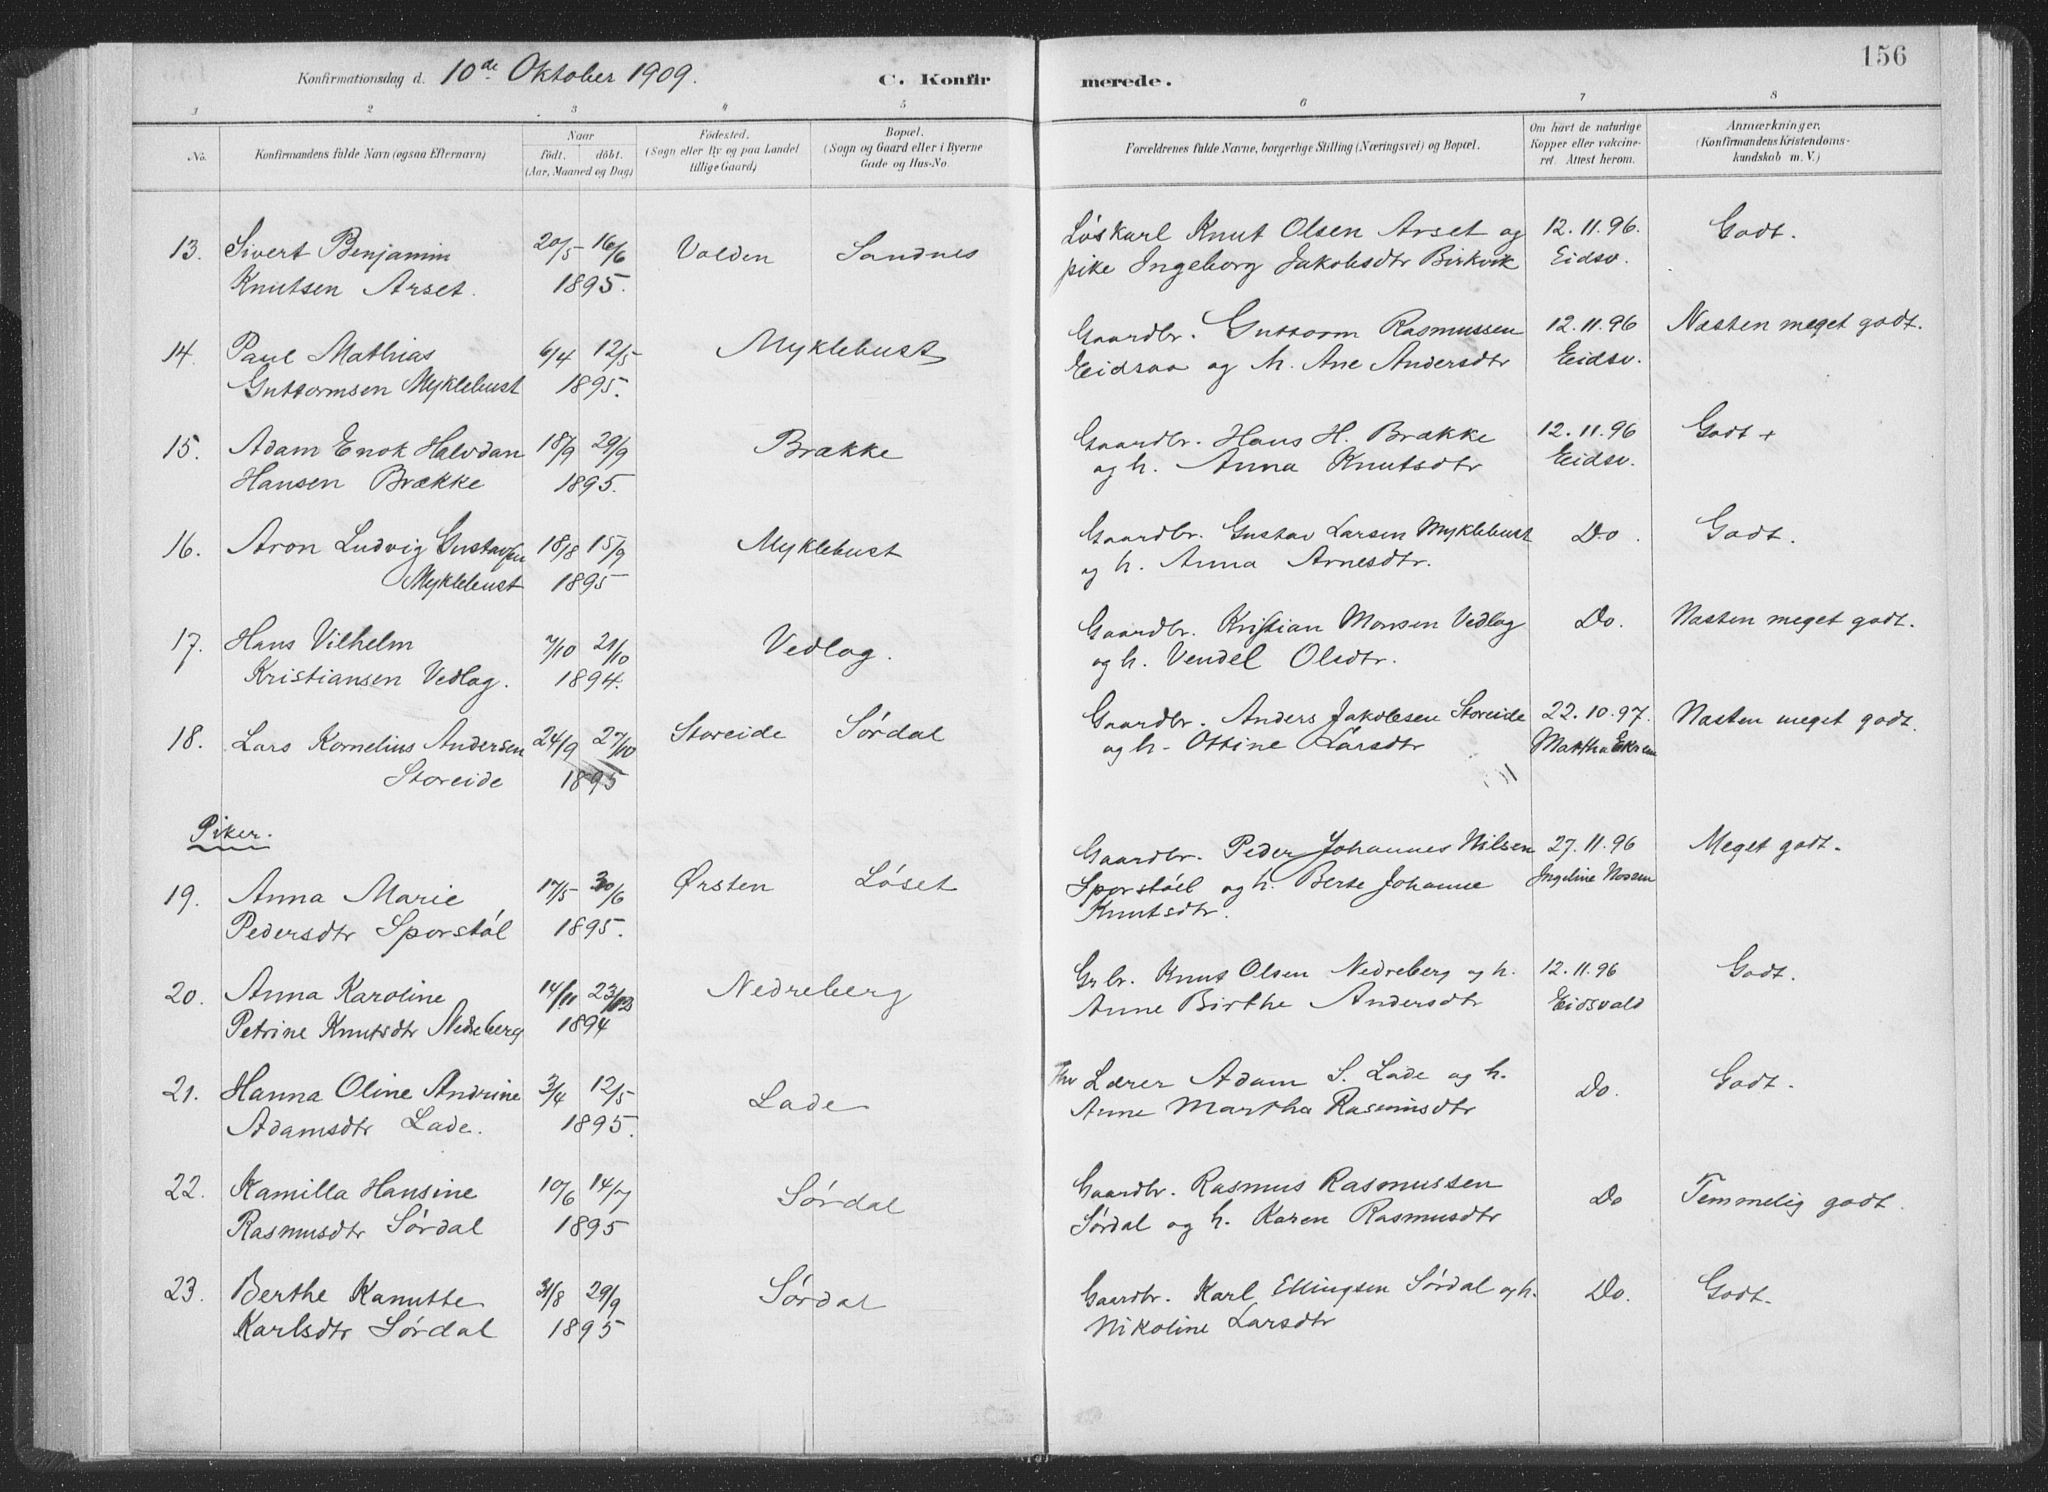 156
Konfirmationsdag d. 10de Oktober 1909. C. Konfirmerede.
1 2 3 4 5 6 7 8
No. Konfirmandens fulde Navn (ogsaa Efternavn) Naar födt. döbt. (Aar, Maaned og Dag) Födested. (Sogn eller By og paa Landet tillige Gaard) Bopæl. (Sogn og Gaard eller i Byerne Gade og Hus-No. Forældrenes fulde Navne, borgerlige Stilling (Næringsvei) og Bopæl. Om havt de naturlige Kopper eller vaccineret. Attest herom. Anmærkninger, (Konfirmandens Kristendomskundskab m. V.)
13. Sivert Benjamin 20/5 16/6 Volden Sandnes Løskarl Knut Olsen Arset og 12.11.96. Godt.
Knutsen Arset. 1895. pike Ingeborg Jakobsdtr Birkvik Eidsv.
14. Paul Mathias 6/4 12/5 Myklebust Gaardbr. Guttorm Rasmussen 12.11.96 Næsten meget godt.
Guttormsen Myklebust 1895. Eidsaa og h. Ane Andersdtr Eidsv.
15. Adam Enok Halvdan 18/9 29/9 Brække Gaardbr. Hans H. Brække 12.11.96 Godt +
Hansen Brække 1895. og h. Anna Knutsdtr Eidsv.
16. Aron Ludvig Gustavsen 18/8 15/9 Myklebust Gaardbr. Gustav Larsen Myklebust Do. Godt.
Myklebust 1895 og h. Anna Arnesdtr.
17. Hans Vilhelm 7/10 21/10 Vedlog. Gaardbr. Kristian Monsen Vedlog Do. Næsten meget godt.
Kristiansen Vedlog. 1894. og h. Vendel Olsdtr.
18. Lars Kornelius Andersen 24/9 27/10 Storeide Sørdal Gaardbr. Anders Jakobsen Storeide 22.10.97. Næsten meget godt.
Storeide 1895 og h. Ottine Larsdtr Martha
Piker.
19. Anna Marie 17/5 30/6 Ørsten Løset Gaardbr. Peder Johannes Nilsen 27.11.96 Meget godt.
Pedersdtr Sporstøl 1895. Sporstøl og h. Berte Johanne Ingeline
Knutsdtr.
20. Anna Karoline 14/11 23/12 Nedreberg Grbr. Knut Olsen Nedreberg og h. 12.11.96 Godt.
Petrine Knutsdtr Nedreberg 1894 Anne Birthe Andersdtr Eidsvald
21. Hanna Oline Andrine 3/4 12/5 Lade Lærer Adam S. Lade og h. Do. Godt.
Adamsdtr Lade. 1895. Anne Martha Rasmusdtr
22. Kamilla Hansine 10/6 14/7 Sørdal Gaardbr. Rasmus Rasmussen Do Temmelig godt.
Rasmusdtr Sørdal 1895 Sørdal og h. Karen Rasmusdtr
23. Berthe Kanutte 31/8 29/9 Sørdal Gaardbr. Karl Ellingsen Sørdal og h. Do. Godt.
Karlsdtr Sørdal 1895 Nikoline Larsdtr